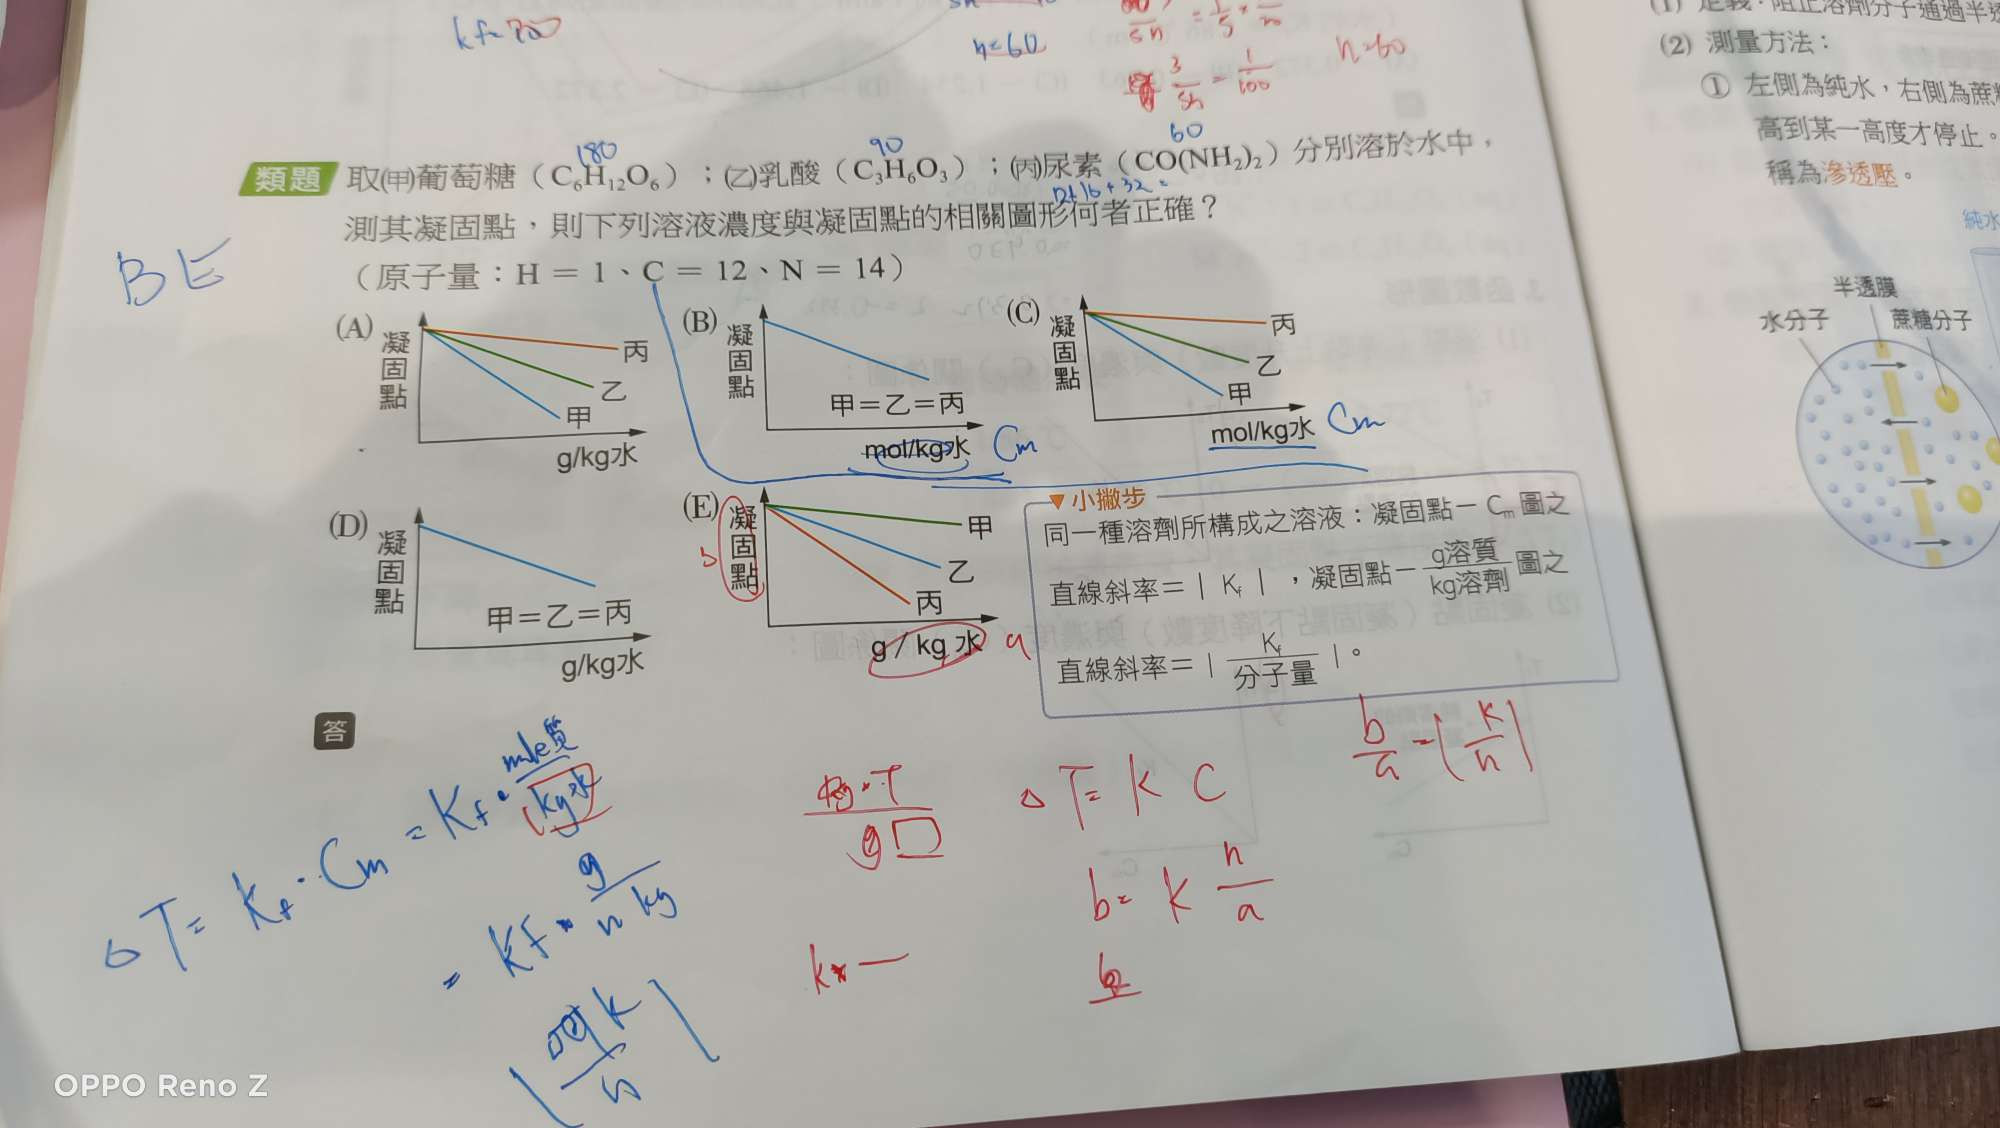 kf=
n=60
n=60
3/5n = 1/100
180
90
60
類題 取(甲)葡萄糖（C₆H₁₂O₆）；(乙)乳酸（C₃H₆O₃）；(丙)尿素（CO(NH₂)₂）分別溶於水中，
12+16+32=
測其凝固點，則下列溶液濃度與凝固點的相關圖形何者正確？
（原子量：H = 1、C = 12、N = 14）
BE
(A) 凝固點 丙 乙 甲 g/kg水
(B) 凝固點 甲＝乙＝丙 mol/kg水 Cm
(C) 凝固點 丙 乙 甲 mol/kg水 Cm
(D) 凝固點 甲＝乙＝丙 g/kg水
(E) 凝固點 甲 乙 丙 g / kg 水
b
a
▼小撇步
同一種溶劑所構成之溶液：凝固點－Cm圖之
直線斜率＝｜Kf｜，凝固點－g溶質/kg溶劑圖之
直線斜率＝｜Kf/分子量｜。
答
△T= Kf · Cm = Kf · mole質/kg水
= Kf · g/n kg
△T= K C
b= K n/a
b/a = |K/n|
(1) 定義：阻止溶劑分子通過半透
(2) 測量方法：
① 左側為純水，右側為蔗糖
高到某一高度才停止。
稱為滲透壓。
純水
半透膜
水分子
蔗糖分子
OPPO Reno Z